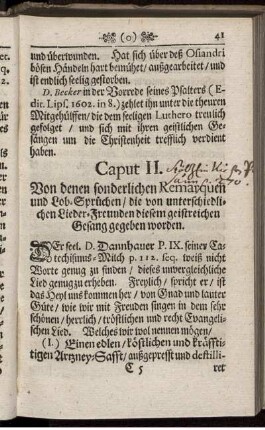 (o) 41
und überwunden. Hat sich über deß Osiandri
bösen Händeln hart bemühet/ außgearbeitet/ und
ist endlich seelig gestorben.
D. Becker in der Vorrede seines Psalters (E-
dit. Lips. 1602. in 8.) zehlet ihn unter die theuren
Mitgehülffen/ die dem seeligen Luthero treulich
gefolget / und sich mit ihren geistlichen Ge-
sängen um die Christenheit trefflich verdient
haben.
Caput II.
Von denen sonderlichen Remarquen
und Lob-Sprüchen/ die von unterschiedli-
chen Lieder-Freunden diesem geistreichen
Gesang gegeben worden.
DEr seel. D. Dannhauer P. IX. seiner Ca-
techismus-Milch p. 112. seq. weiß nicht
Worte genug zu finden / dieses unvergleichliche
Lied genug zu erheben. Freylich/ spricht er/ ist
das Heyl uns kommen her/ von Gnad und lauter
Güte/ wie wir mit Freuden singen in dem sehr
schönen/ herrlich/ tröstlichen und recht Evangeli-
schen Lied. Welches wir wol nennen mögen/
(1.) Einen edlen/ köstlichen und kräfff-
tigen Artzney-Safft/ außgepresst und destilli-
C 5 ret